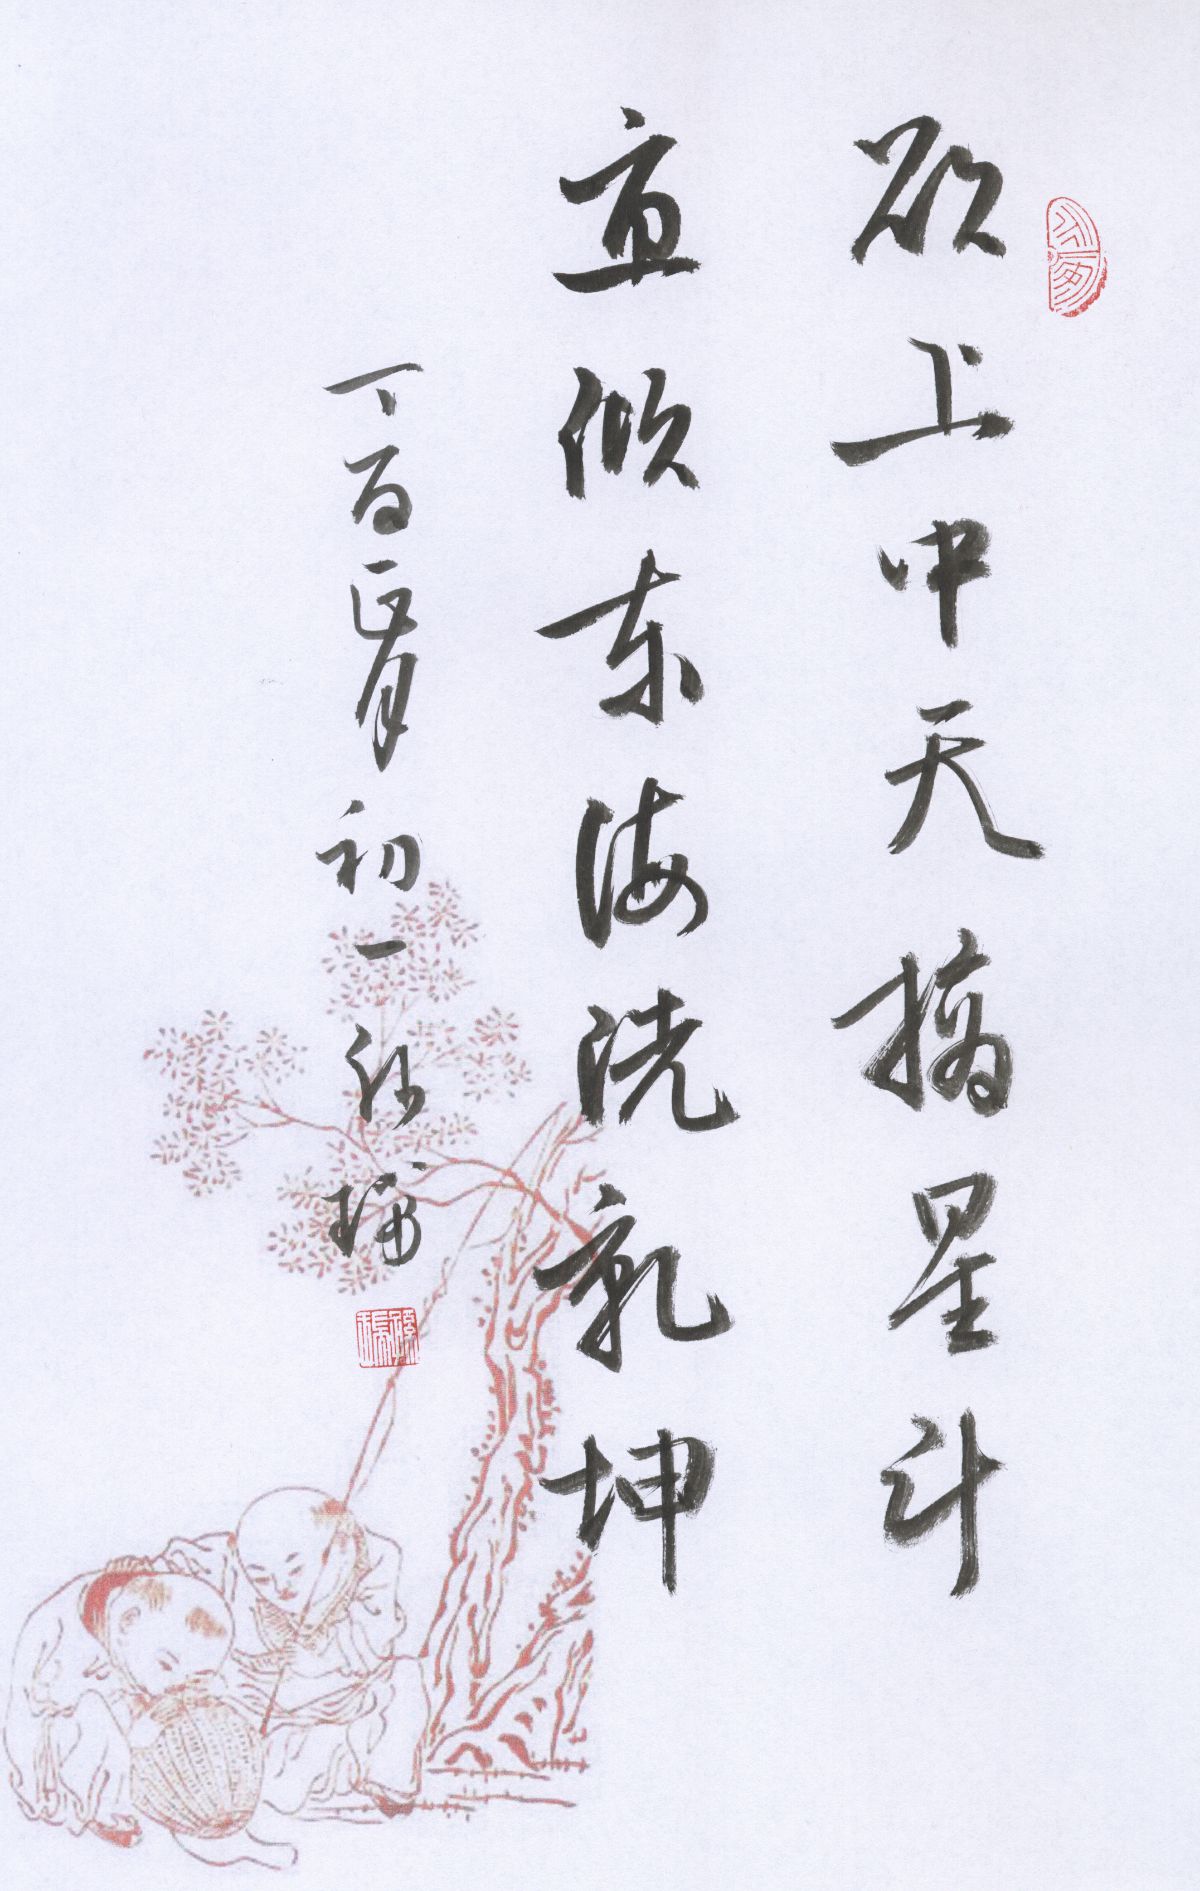 欲上中天摘星斗
直倾东海洗乾坤
丁酉正月初一